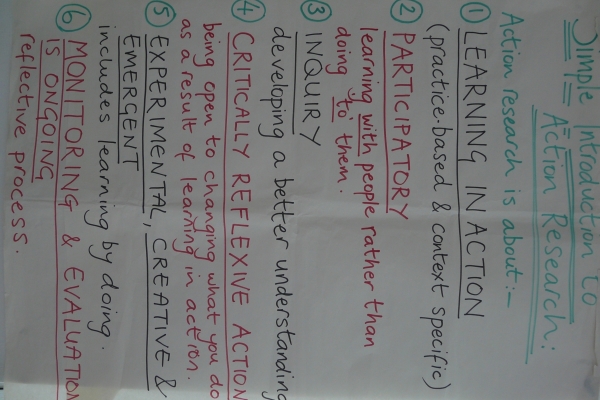 Simple Introduction to
Action Research:
Action research is about:-
① LEARNING IN ACTION
(practice-based & context specific)
② PARTICIPATORY
learning with people rather than
doing to them.
③ INQUIRY
developing a better understanding
④ CRITICALLY REFLEXIVE ACTION
being open to changing what you do
as a result of learning in action.
⑤ EXPERIMENTAL, CREATIVE &
EMERGENT
includes learning by doing.
⑥ MONITORING & EVALUATION
IS ONGOING
reflective process.